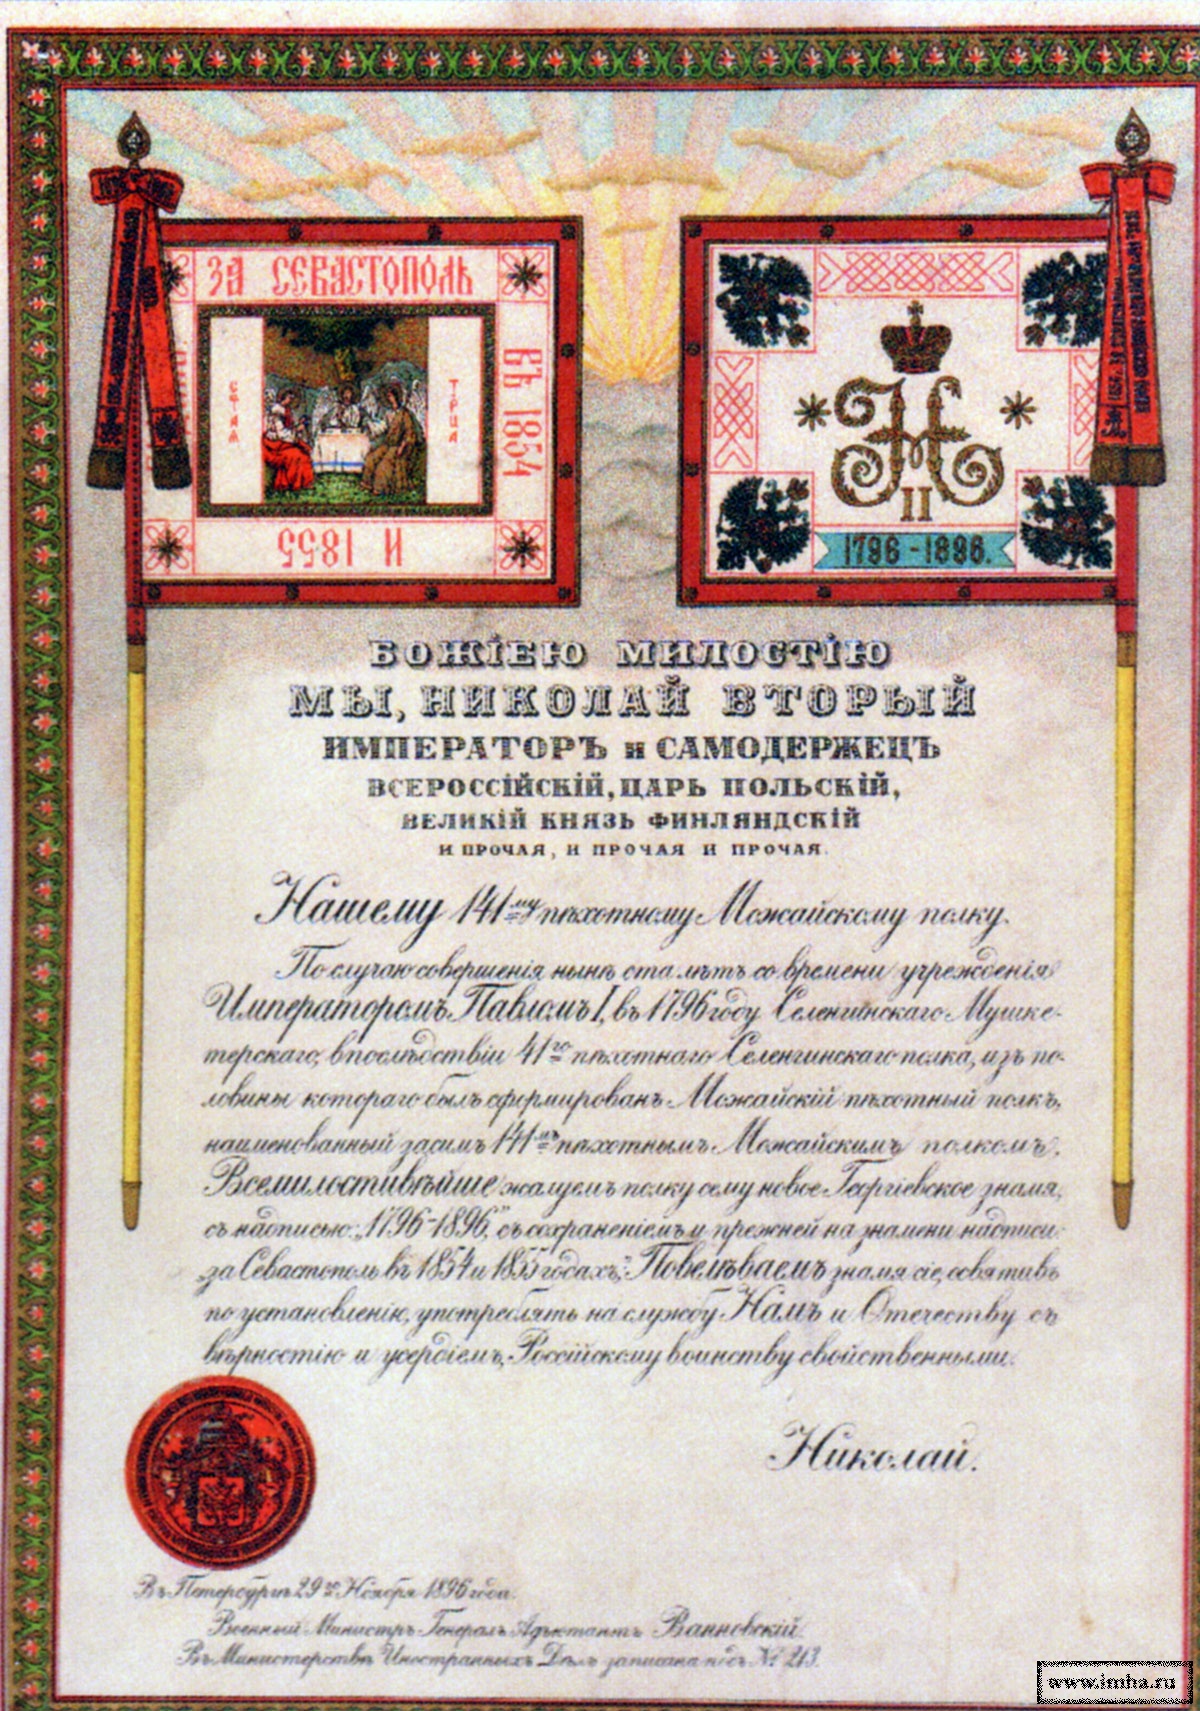 ЗА СЕВАСТОПОЛЬ
ВЪ 1854
И 1855
СТАЯ
ТРЦА
II
1796-1896.
БОЖІЕЮ МИЛОСТІЮ
МЫ, НИКОЛАЙ ВТОРЫЙ
ИМПЕРАТОРЪ и САМОДЕРЖЕЦЪ
ВСЕРОССІЙСКІЙ, ЦАРЬ ПОЛЬСКІЙ,
ВЕЛИКІЙ КНЯЗЬ ФИНЛЯНДСКІЙ
И ПРОЧАЯ, И ПРОЧАЯ И ПРОЧАЯ.
Нашему 141му пѣхотному Можайскому полку.
По случаю совершенія нынѣ ста лѣтъ со времени учрежденія
Императоромъ Павломъ I, въ 1796 году Селенгинскаго Мушке-
терскаго, впослѣдствіи 41го пѣхотнаго Селенгинскаго полка, изъ по-
ловины котораго былъ сформированъ Можайскій пѣхотный полкъ,
наименованный засимъ 141мъ пѣхотнымъ Можайскимъ полкомъ,
Всемилостивѣйше жалуемъ полку сему новое Георгіевское знамя,
съ надписью: „1796-1896," съ сохраненіемъ и прежней на знамени надписи:
„за Севастополь въ 1854 и 1855 годахъ;" Повелѣваемъ знамя сіе, освятивъ
по установленію, употреблять на службу Намъ и Отечеству съ
вѣрностію и усердіемъ, Россійскому воинству свойственными.
Николай.
Въ Петербургѣ 29го Ноября 1896 года.
Военный Министръ Генералъ Адъютантъ Ванновскій
Въ Министерствѣ Иностранныхъ Дѣлъ записана подъ № 213.
www.imha.ru